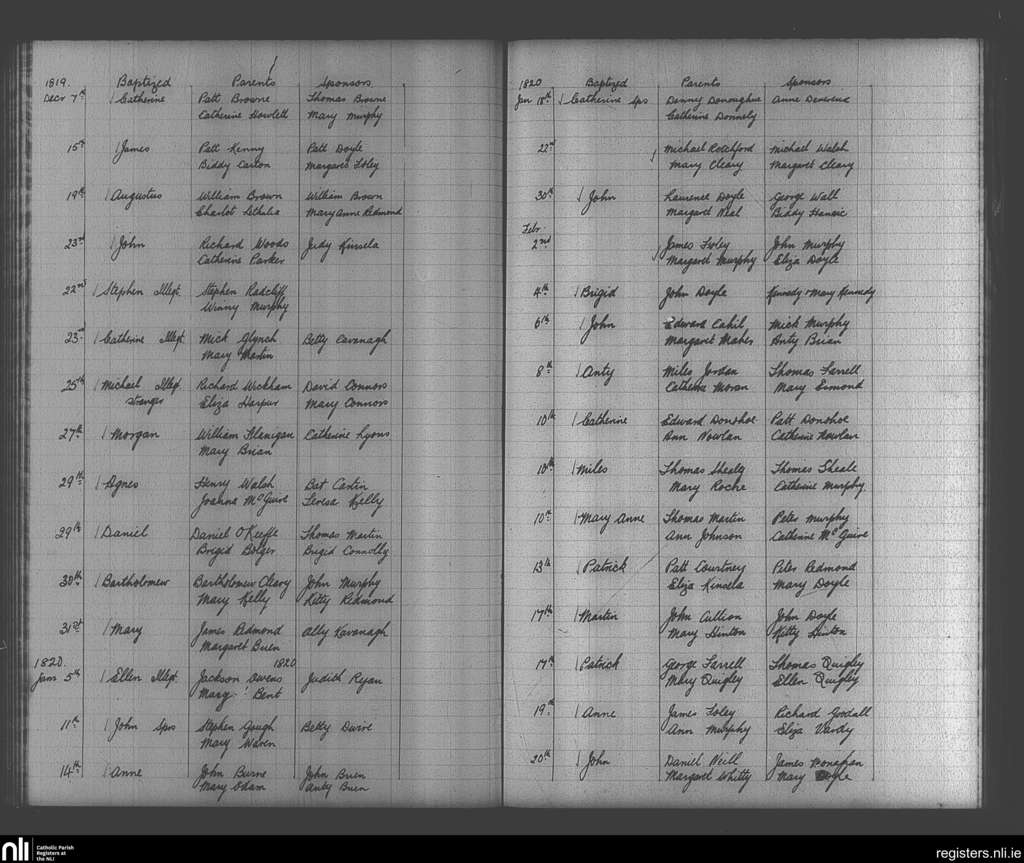 1819. Baptized Parents Sponsors
Decr 7th Catherine Patt Browne Thomas Browne
Catherine Howlett Mary Murphy
15th James Patt Kenny Patt Doyle
Biddy Carton Margaret Foley
19th Augustus William Brown William Brown
Charlot Lethulia Mary Anne Redmond
23rd John Richard Woods Judy Kinsela
Catherine Parker
22nd Stephen Illegt Stephen Radcliff
Winny Murphy
23rd Catherine Illegt Mick Glynch Betty Cavanagh
Mary Martin
25th Michael Illegt Richard Wickham David Connors
stranger Eliza Harpur Mary Connors
27th Morgan William Flanigan Catherine Lyons
Mary Brian
29th Agnes Henry Walsh Bat Castin
Joanna McGuire Teresa Kelly
29th Daniel Daniel O'Keeffe Thomas Martin
Brigid Bolger Brigid Connolly
30th Bartholomew Bartholomew Cleary John Murphy
Mary Kelly Kitty Redmond
31st Mary James Redmond Ally Kavanagh
Margaret Buen
1820. 1820
Jan 5th Ellen Illegt Jackson Owens Judith Ryan
Marg. Bent
11th John Sps Stephen Gough Betty Dwire
Mary Waren
14th Anne John Burne John Buen
Mary Odam Anty Buen
1820 Baptized Parents Sponsors
Jan 18th Catherine Sps Denny Donoughue Anne Devereux
Catherine Donnely
22nd Michael Rotchford Michael Walsh
Mary Cleary Margaret Cleary
30th John Laurence Doyle George Wall
Margaret Neal Biddy
Febr.
2nd James Foley John Murphy
Margaret Murphy Eliza Doyle
4th Brigid John Doyle Kennedy + Mary Kennedy
6th John Edward Cahil Mick Murphy
Margaret Maher Anty Brian
8th Anty Miles Jordan Thomas Farrell
Catherine Moran Mary Esmond
10th Catherine Edward Donohoe Patt Donohoe
Ann Nowlan Catherine Nowlan
10th Miles Thomas Shealy Thomas Sheale
Mary Roche Catherine Murphy
10th Mary Anne Thomas Martin Peter Murphy
Ann Johnson Catherine McGuire
13th Patrick Patt Courtney Peter Redmond
Eliza Kinsela Mary Doyle
17th Martin John Cullion John Doyle
Mary Hinton Kitty Hinton
17th Patrick George Farrell Thomas Quigley
Mary Quigley Ellen Quigley
19th Anne James Foley Richard Goodall
Ann Murphy Eliza Vardy
20th John Daniel Neill James Monahan
Margaret Whitty Mary Doyle
nli Catholic Parish
Registers at
the NLI
registers.nli.ie